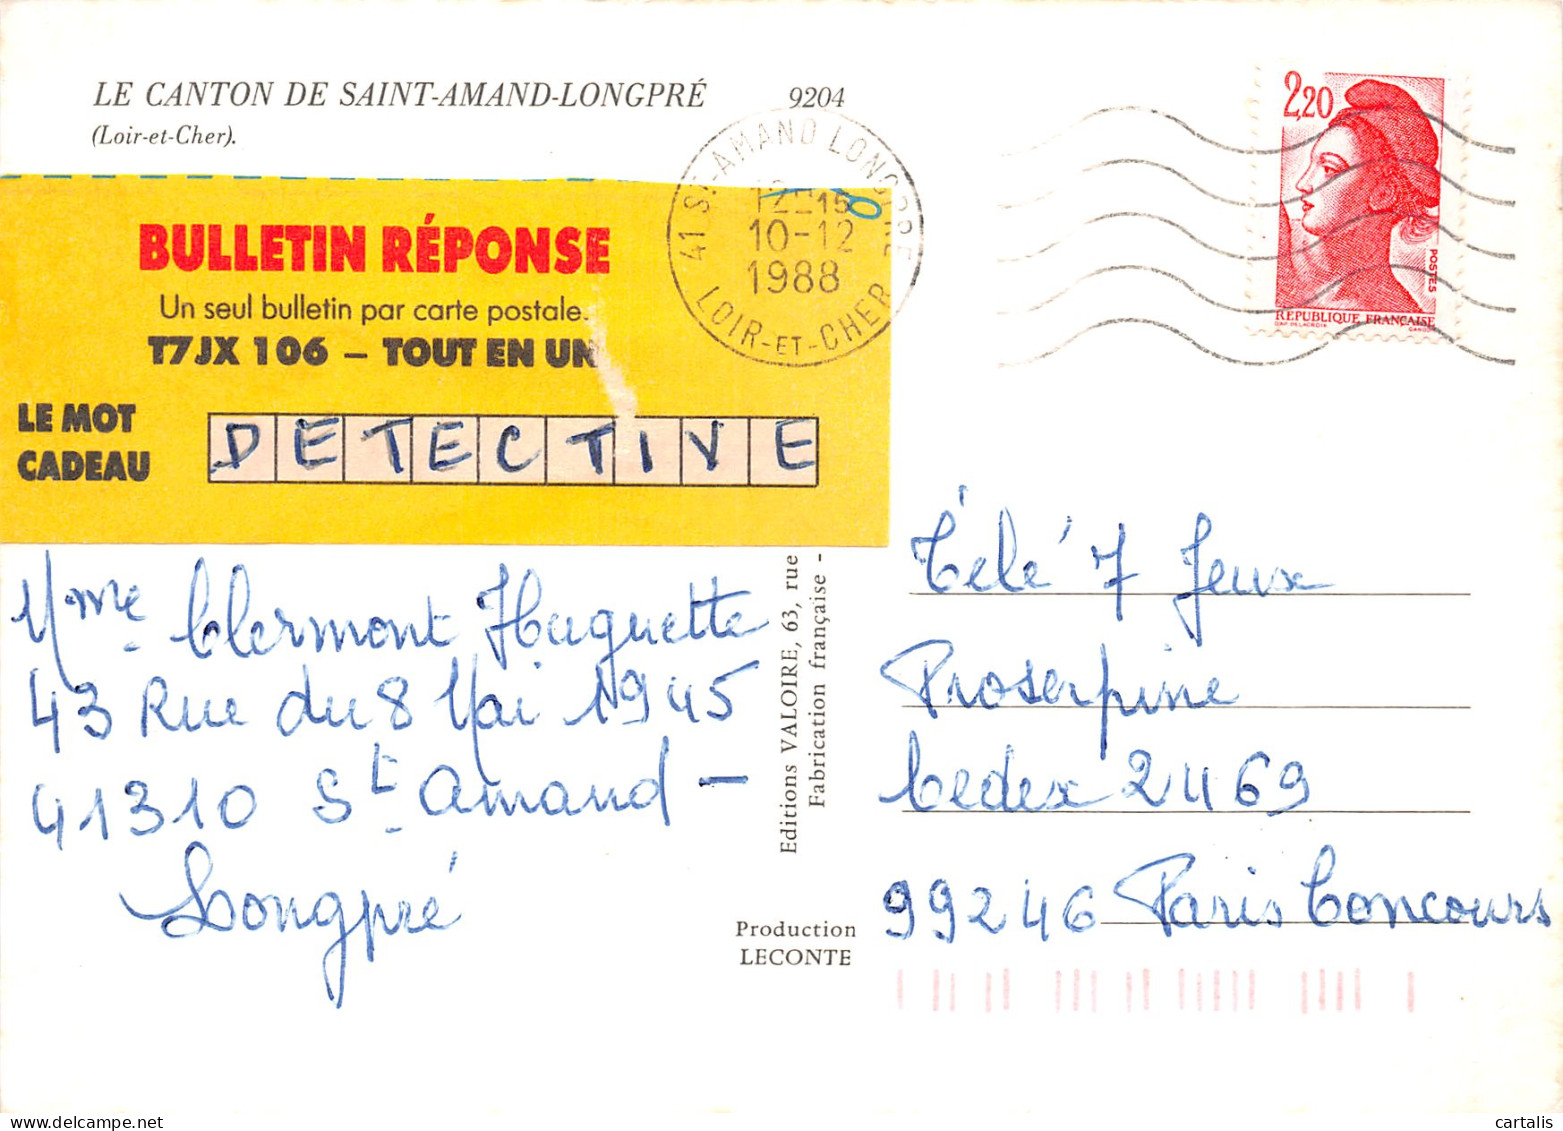 LE CANTON DE SAINT-AMAND-LONGPRÉ 9204
(Loir-et-Cher).
41 ST-AMAND LONGPRE
12-15
10-12
1988
LOIR-ET-CHER
2,20
POSTES
REPUBLIQUE FRANÇAISE
DELACROIX GANDON
BULLETIN RÉPONSE
Un seul bulletin par carte postale.
T7JX 106 – TOUT EN UN
LE MOT
CADEAU
DETECTIVE
Mme Clermont Huguette
43 Rue du 8 Mai 1945
41310 St Amand –
Longpré
Editions VALOIRE, 63, rue
Fabrication française -
Production
LECONTE
Télé 7 Jeux
Proserpine
Cedex 2469
99246 Paris Concours
cartalis
www.delcampe.net